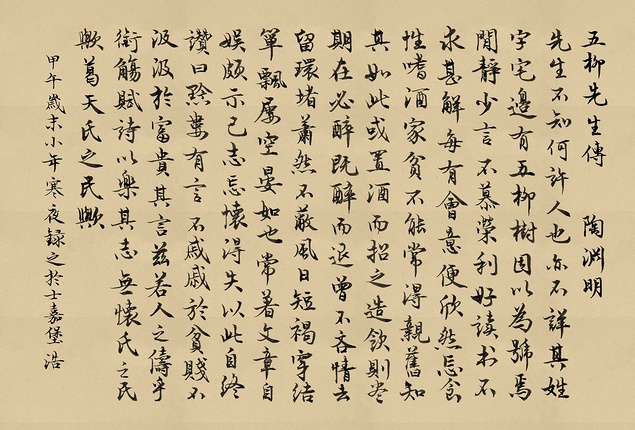 五柳先生傳 陶淵明
先生不知何許人也亦不詳其姓
字宅邊有五柳樹因以為號焉
閒靜少言不慕榮利好讀书不
求甚解每有會意便欣然忘食
性嗜酒家貧不能常得親舊知
其如此或置酒而招之造飲則盡
期在必醉既醉而退曾不吝情去
留環堵蕭然不蔽風日短褐穿結
簞瓢屢空晏如也常著文章自
娛頗示己志忘懷得失以此自終
讚曰黔婁有言不戚戚於貧賤不
汲汲於富貴其言茲若人之儔乎
銜觴賦詩以樂其志無懷氏之民
歟葛天氏之民歟
甲午歲末小年寒夜錄之於士嘉堡浩